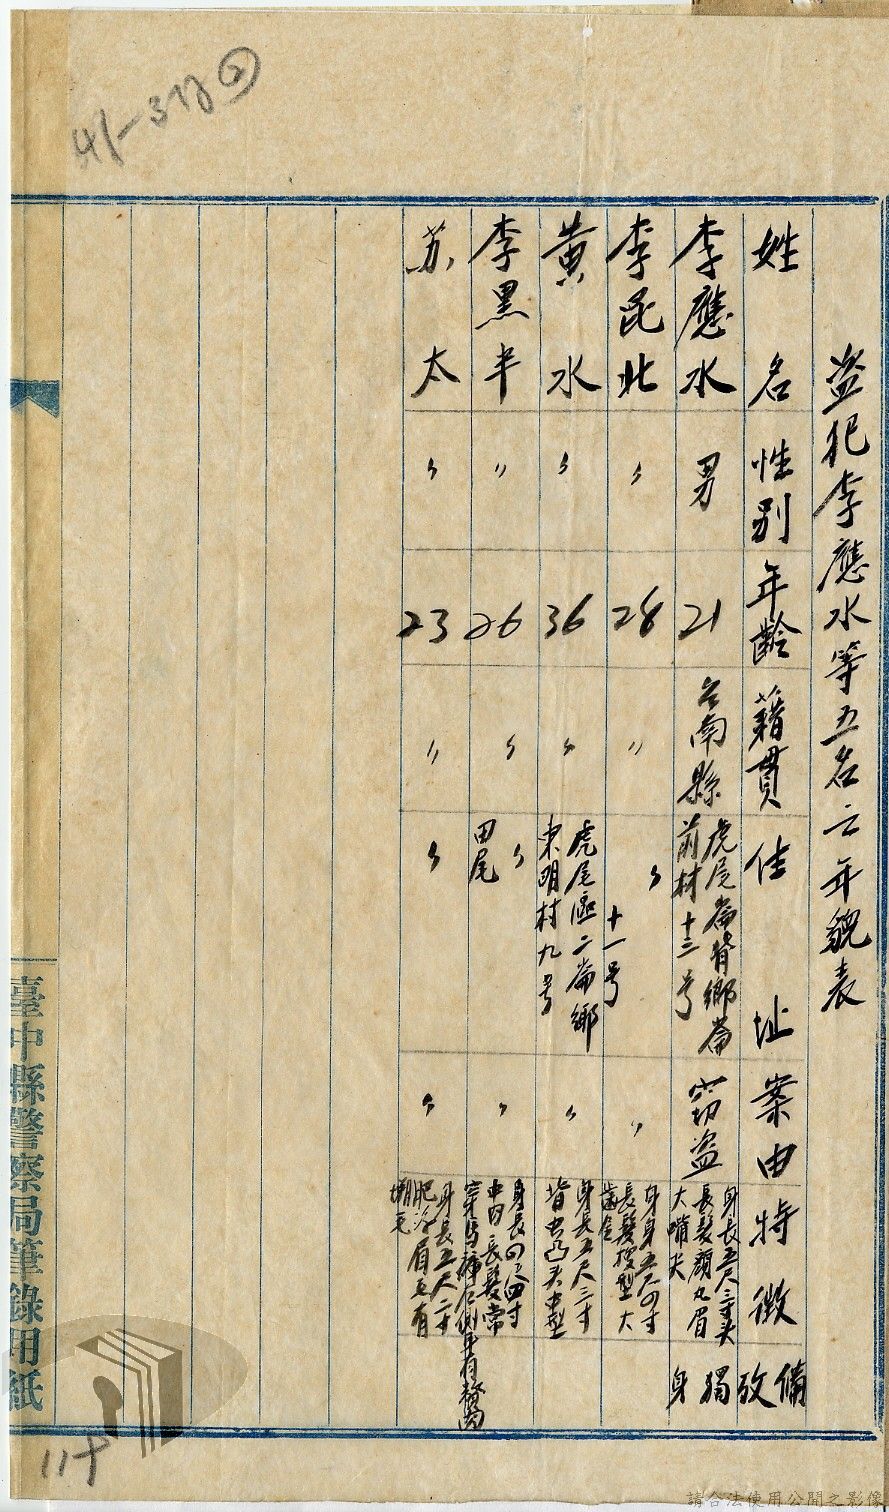 41-378②
盜犯李應水等五名之年貌表
姓名 性別 年齡 籍貫 住址 案由 特徵 備攷
李應水 男 21 台南縣 虎尾崙背鄉崙前村十三号 窃盜 身長五尺三寸頭長髮顏丸眉大嘴尖 獨身
李昆北 〃 28 〃 〃十一号 〃 身長五尺四寸長髮瘦型大齒金
黃水 〃 36 〃 虎尾區二崙鄉東明村九号 〃 身長五尺三寸背출凸头中型
李黑半 〃 26 〃 〃田尾 〃 身長四尺四寸中肉長髮常穿馬褲右側
苏太 〃 23 〃 〃 〃 身長五尺二寸肥 眉毛有
臺中縣警察局筆錄用紙
117
請合法使用公開之影像